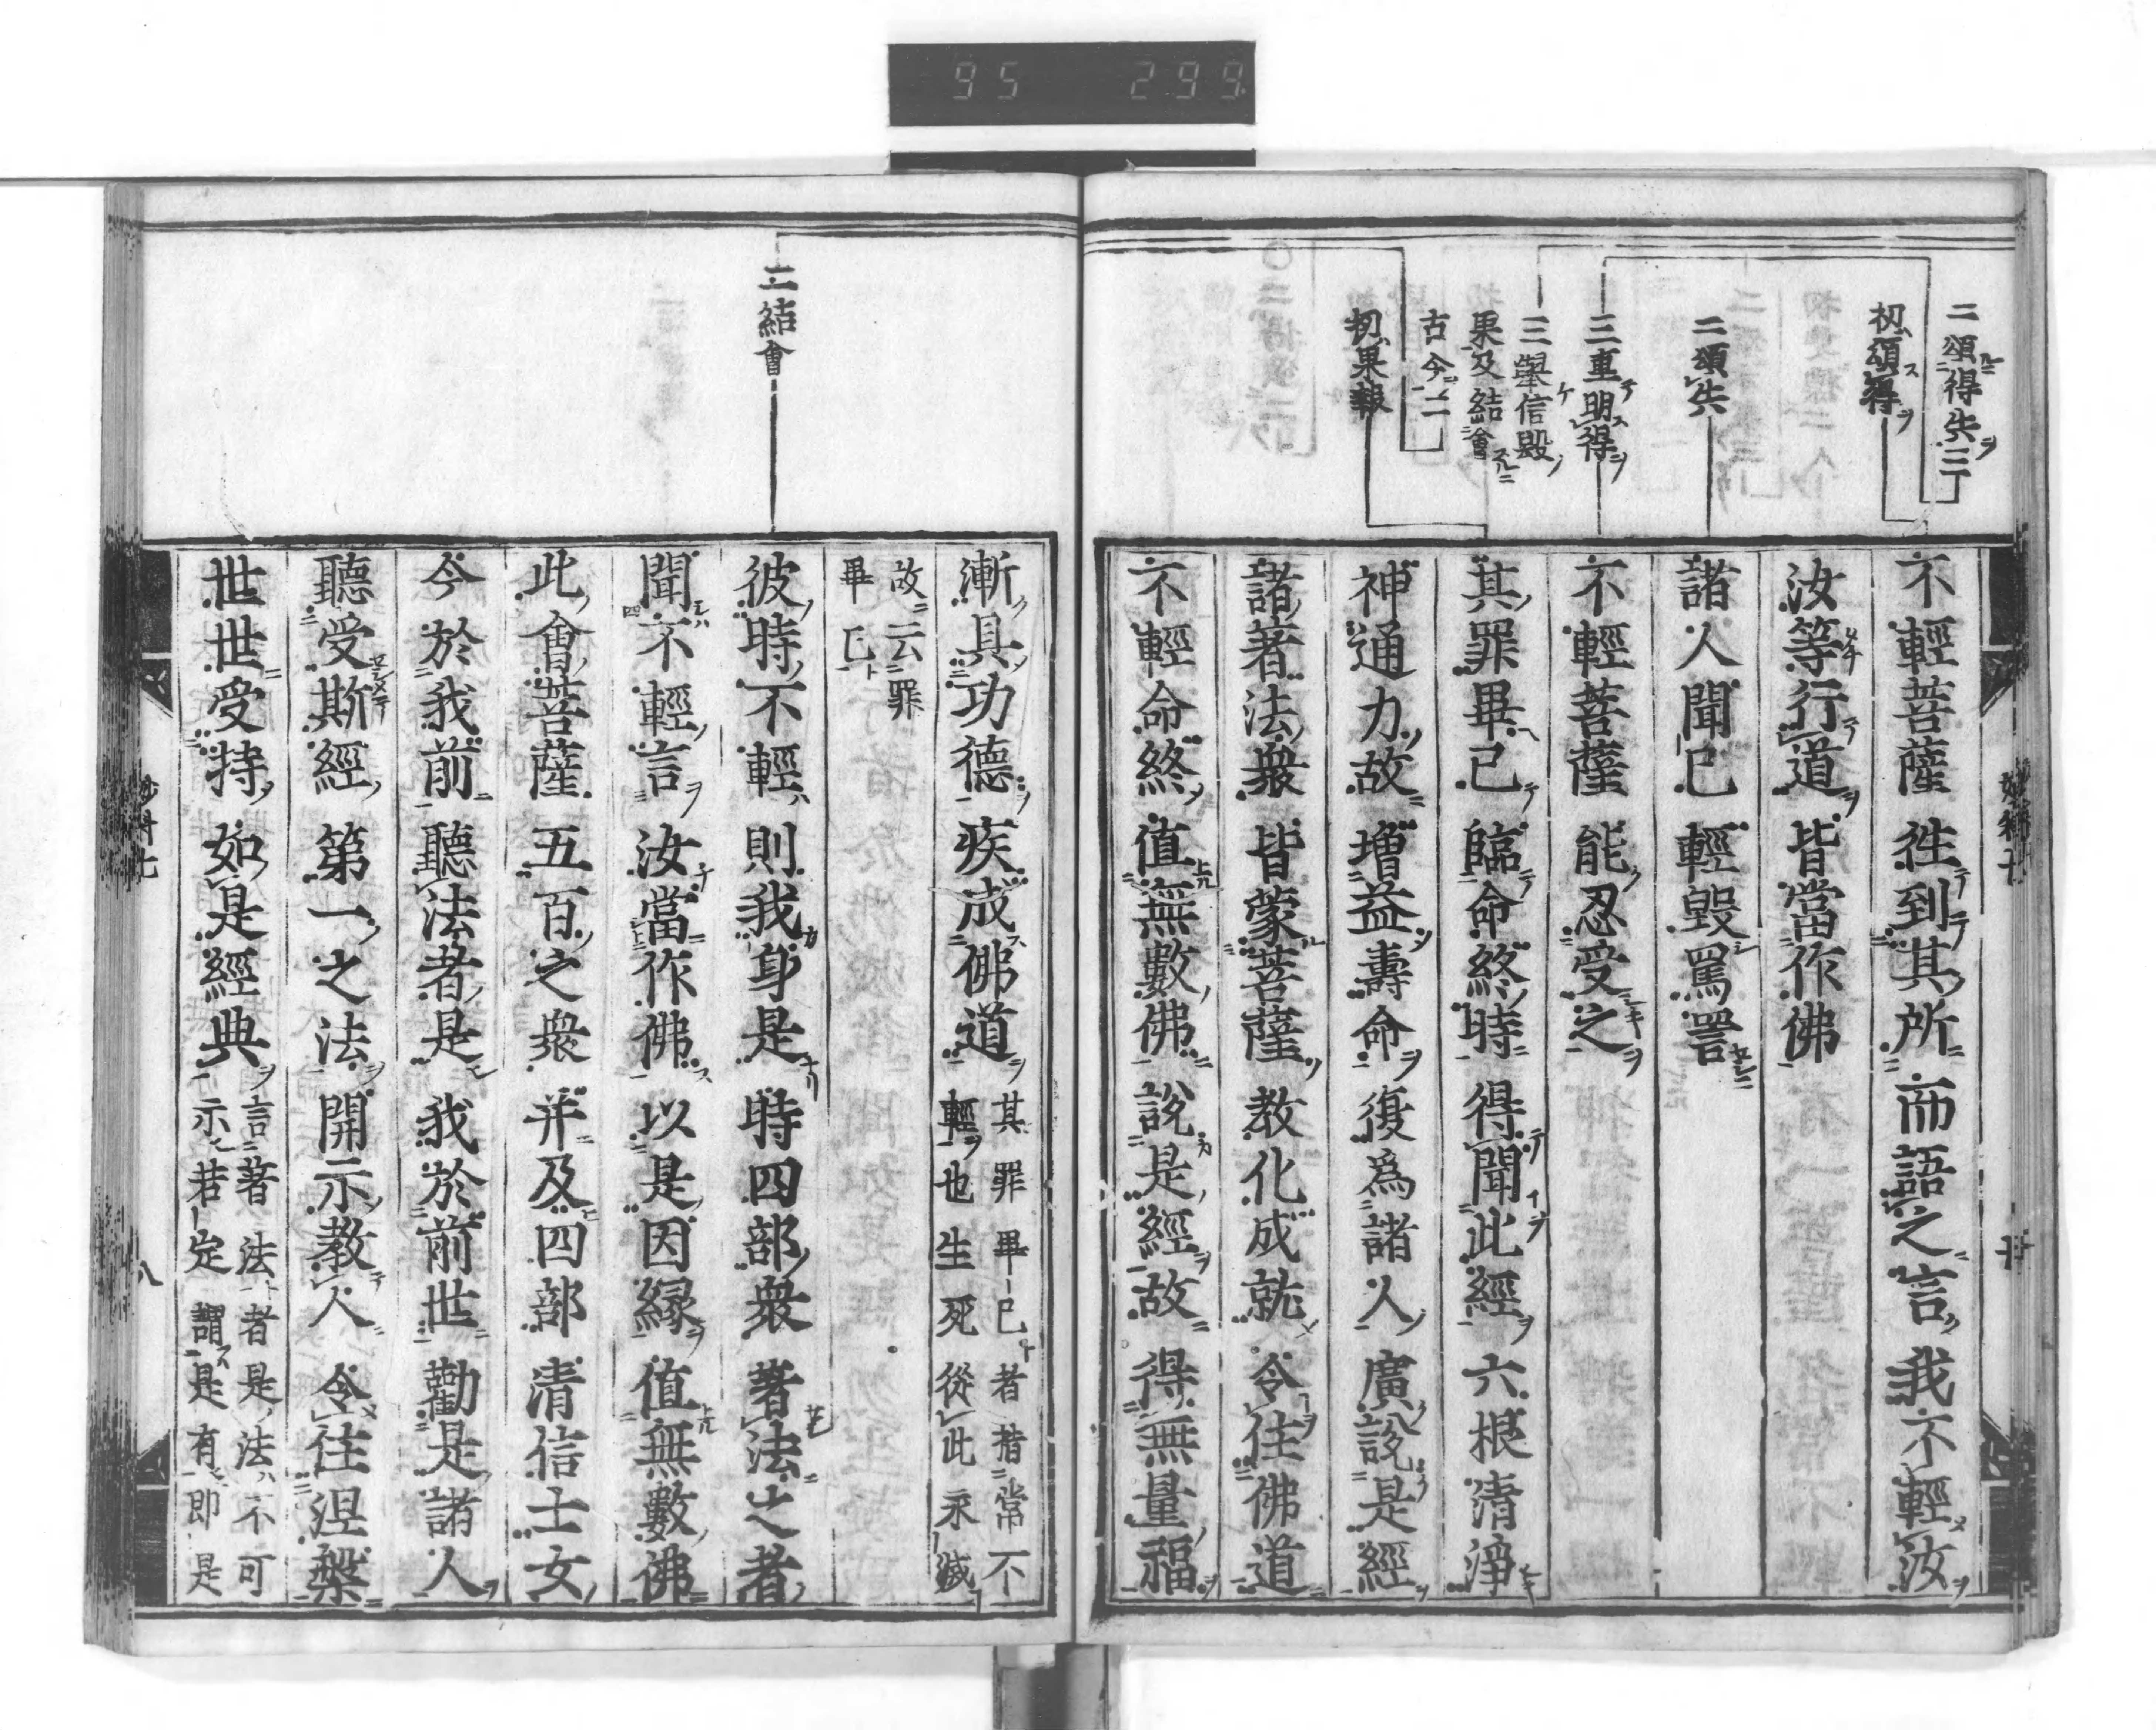 95 299
二頌得失三
初頌得
二頌失
三重明得
三舉信毀
果及結會
古今二
初果報
不輕菩薩 往到其所 而語之言 我不輕汝
汝等行道 皆當作佛
諸人聞已 輕毀罵詈
不輕菩薩 能忍受之
其罪畢已 臨命終時 得聞此經 六根清淨
神通力故 增益壽命 復爲諸人 廣說是經
諸著法衆 皆蒙菩薩 教化成就 令住佛道
不輕命終 值無數佛 說是經故 得無量福
二結會
漸具功德 疾成佛道 其罪畢已者指常不
輕也生死從此永滅
故云罪
畢已
彼時不輕 則我身是 時四部衆 著法之者
聞不輕言 汝當作佛 以是因緣 值無數佛
此會菩薩 五百之衆 并及四部 清信士女
今於我前 聽法者是 我於前世 勸是諸人
聽受斯經 第一之法 開示教人 令住涅槃
世世受持 如是經典 言著法者是法不可
示若定謂是有即是
八